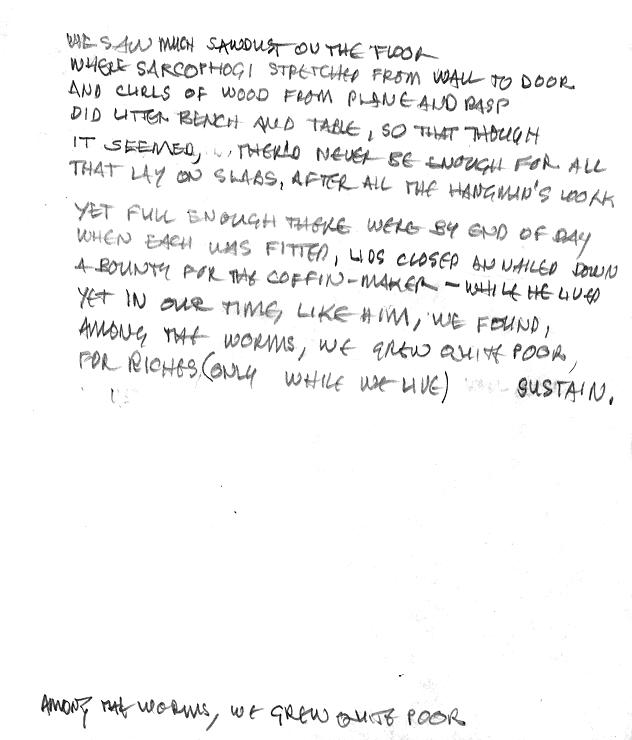 WE SAW MUCH SAWDUST ON THE FLOOR
WHERE SARCOPHOGI STRETCHED FROM WALL TO DOOR
AND CURLS OF WOOD FROM PLANE AND RASP
DID LITTER BENCH AND TABLE, SO THAT THOUGH
IT SEEMED, THER'D NEVER BE ENOUGH FOR ALL
THAT LAY ON SLABS, AFTER ALL THE HANGMAN'S WORK
YET FULL ENOUGH THERE WERE BY END OF DAY
WHEN EACH WAS FITTED, LIDS CLOSED AN NAILED DOWN
A BOUNTY FOR THE COFFIN-MAKER – WHILE HE LIVED
YET IN OUR TIME, LIKE HIM, WE FOUND,
AMONG THE WORMS, WE GREW QUITE POOR,
FOR RICHES (ONLY WHILE WE LIVE) SUSTAIN.
AMONG THE WORMS, WE GREW QUITE POOR